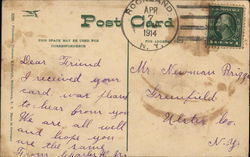 Post Card
THIS SPACE MAY BE USED FOR
CORRESPONDENCE
ROCKLAND
APR
7
1914
N.Y.
Dear Friend
I received your
card was glad
to hear from you
We are all well
and hope you
are the same
From
Mr. Newman Briggs
Greenfield
Ulster Co.
N.Y.